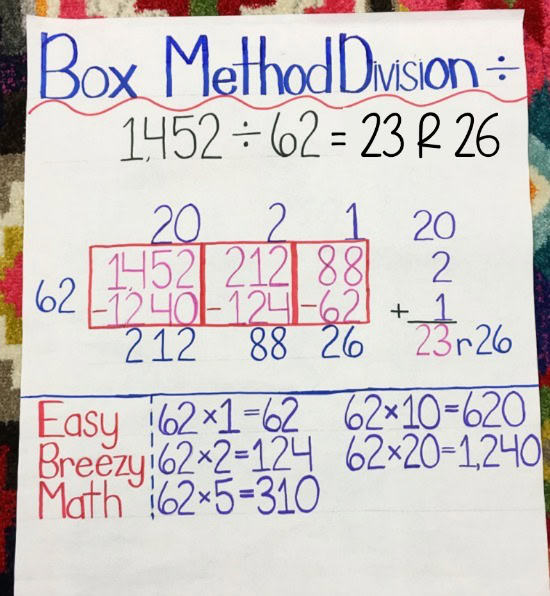 Box Method Division ÷
1,452 ÷ 62 = 23 R 26
20 2 1 20
62 1452 212 88 2
-1240 -124 -62 + 1
212 88 26 23 r 26
Easy 62×1=62 62×10=620
Breezy 62×2=124 62×20=1,240
Math 62×5=310